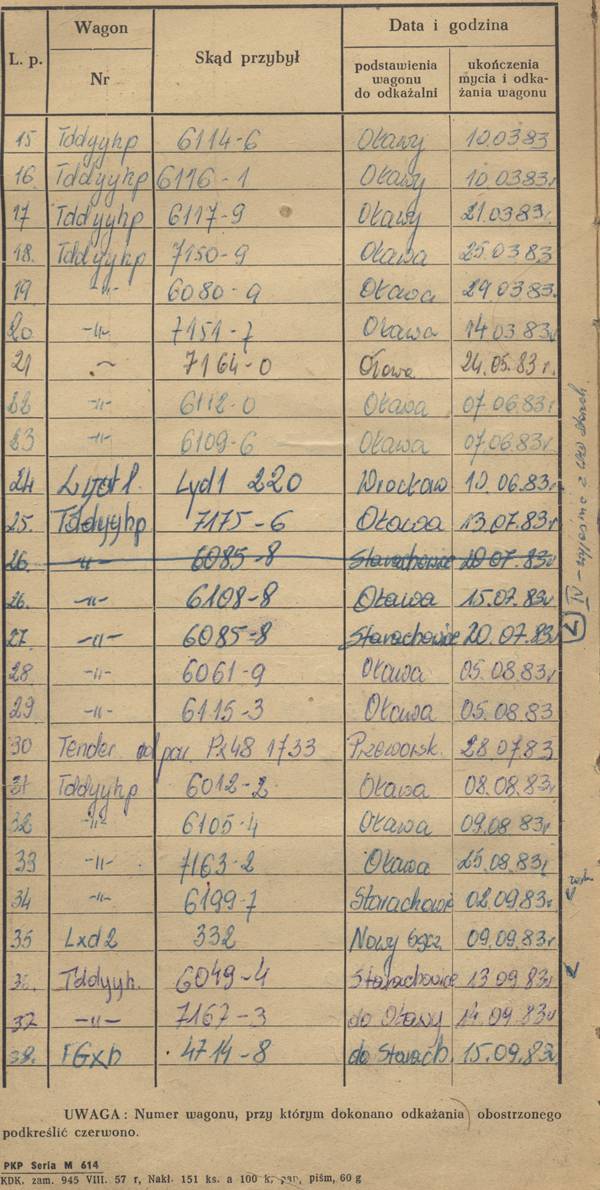 Wagon
Data i godzina
L. p.
Nr
Skąd przybył
podstawienia wagonu do odkażalni
ukończenia mycia i odka-
żania wagonu
15 Tddyyhp 6114-6 Oławy 10.03 83
16. Tddyyhp 6116-1 Oławy 10.03 83r
17 Tddyyhp 6117-9 Oławy 21.03 83r.
18. Tddyyhp 7150-9 Oława 25.03 83
19 -"- 6080-9 Oława 29.03 83.
20 -"- 7151-7 Oława 14 03 83r
21 -"- 7164-0 Oława 24.05.83 r.
22 -"- 6112-0 Oława 07.06.83r
23 -"- 6109-6 Oława 07.06.83r
24 Lyd1. Lyd1 220 Wrocław 10.06.83r
25. Tddyyhp 7175-6 Oława 13.07.83r
26. -"- 6085-8 Starachowice 20 07.83r
26. -"- 6108-8 Oława 15.07.83r
27. -"- 6085-8 Starachowice 20.07.83r
28 -"- 6061-9 Oława 05.08.83r
29 -"- 6115-3 Oława 05.08.83
30 Tender od par. Px48 1733 Przeworsk. 28.07.83
31 Tddyyhp 6012-2 Oława 08.08.83r
32 -"- 6105-4 Oława 09.08 83r
33 -"- 7163-2 Oława 25.08.83r
34 -"- 6199-7 02.09.83r
35 Lxd2 332 Nowy 09.09.83r
36. Tddyyh. 6049-4 Starachowice 13 09 83r
37 -"- 7167-3 do Oławy 14.09 83r
38. FGxh 4714-8 do Starach. 15.09.83r
UWAGA: Numer wagonu, przy którym dokonano odkażania obostrzonego
podkreślić czerwono.
PKP Seria M 614
KDK. zam. 945 VIII. 57 r, Nakł. 151 ks. a 100 k, pap, piśm, 60 g